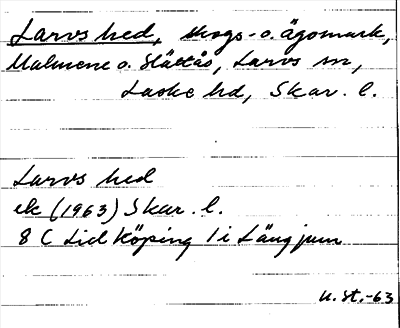 Larvs hed, skogs- o. ägomark,
Malmene o. Slättås, Larvs sn,
Laske hd, Skar. l.
Larvs hed
ek (1963) Skar. l.
8 C Lidköping 1 i Längjum
U. St. -63